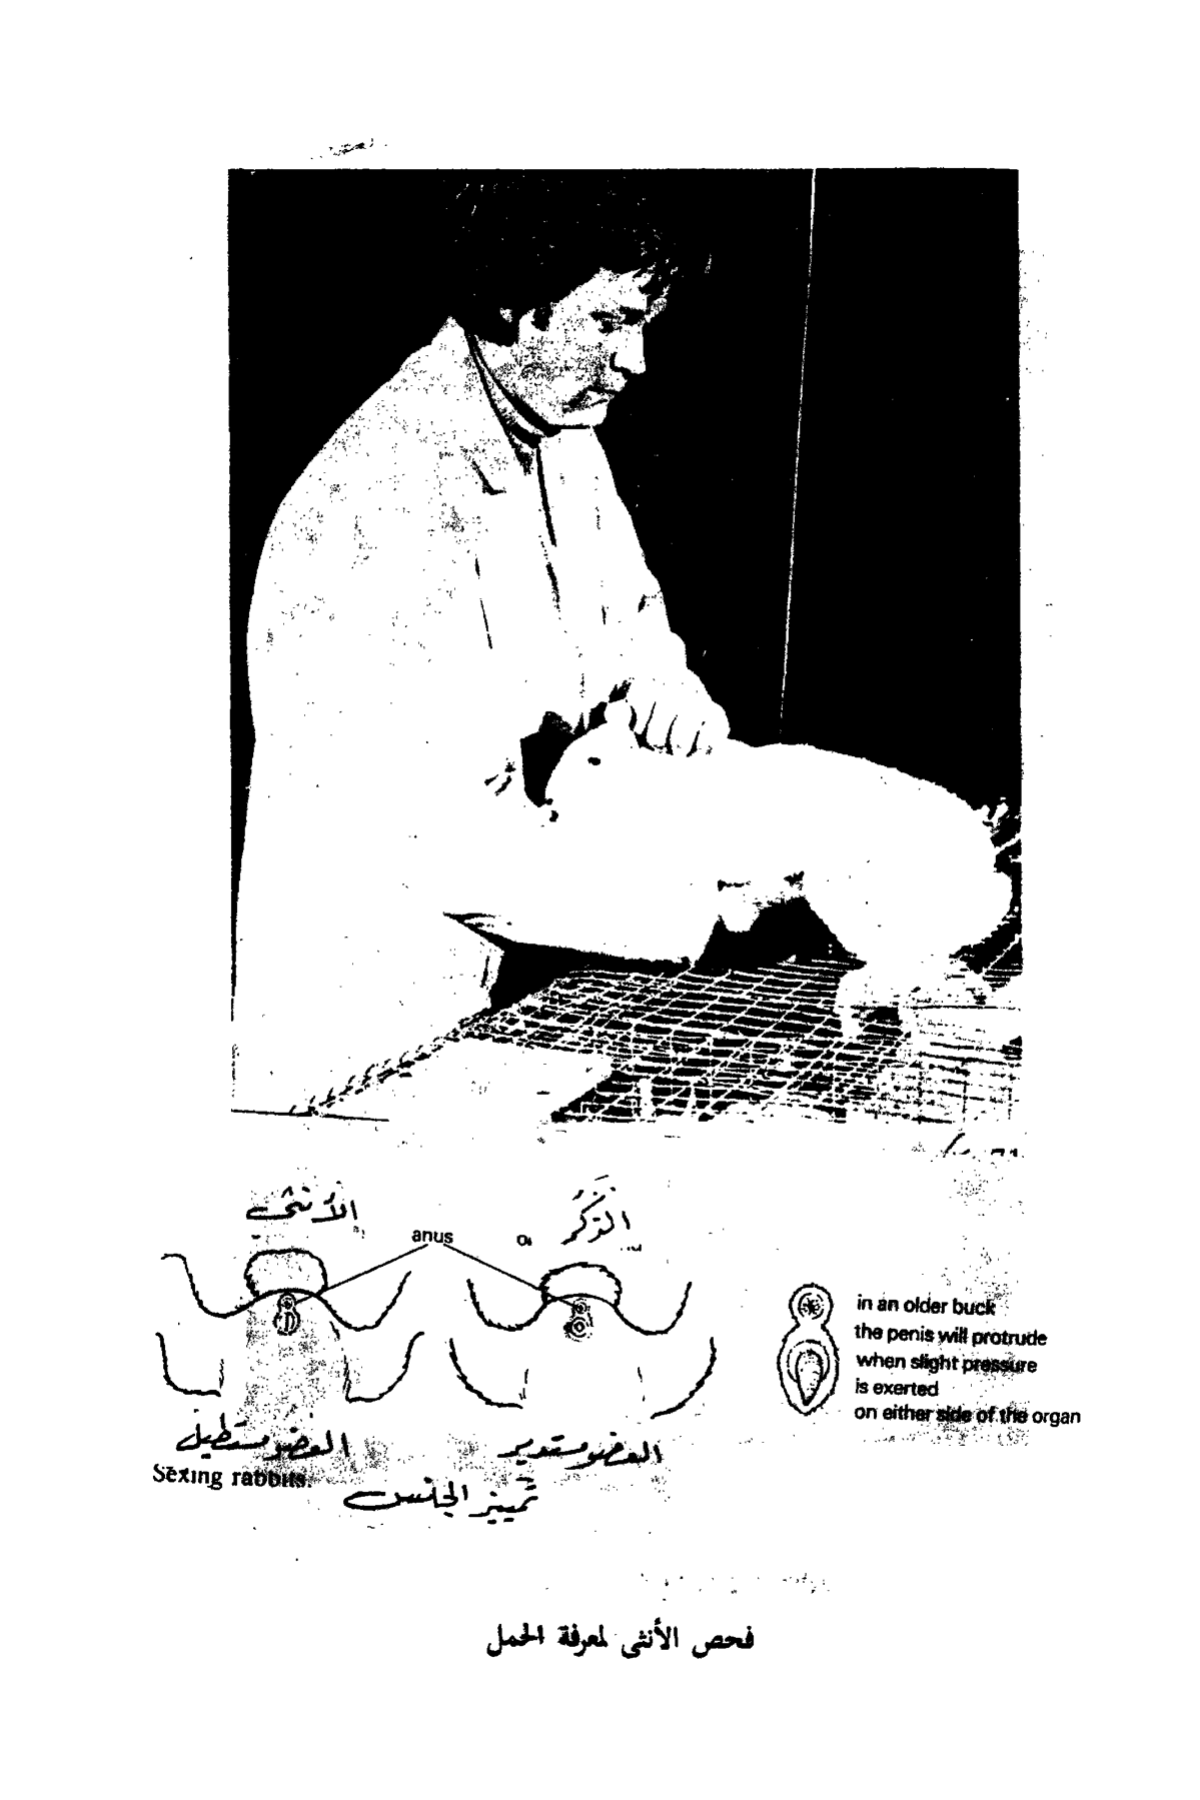 الأنثى
الذَكَر
anus
in an older buck
the penis will protrude
when slight pressure
is exerted
on either side of the organ
العضو مستطيل
العضو مستدير
Sexing rabbits.
تمييز الجنس
فحص الأنثى لمعرفة الحمل